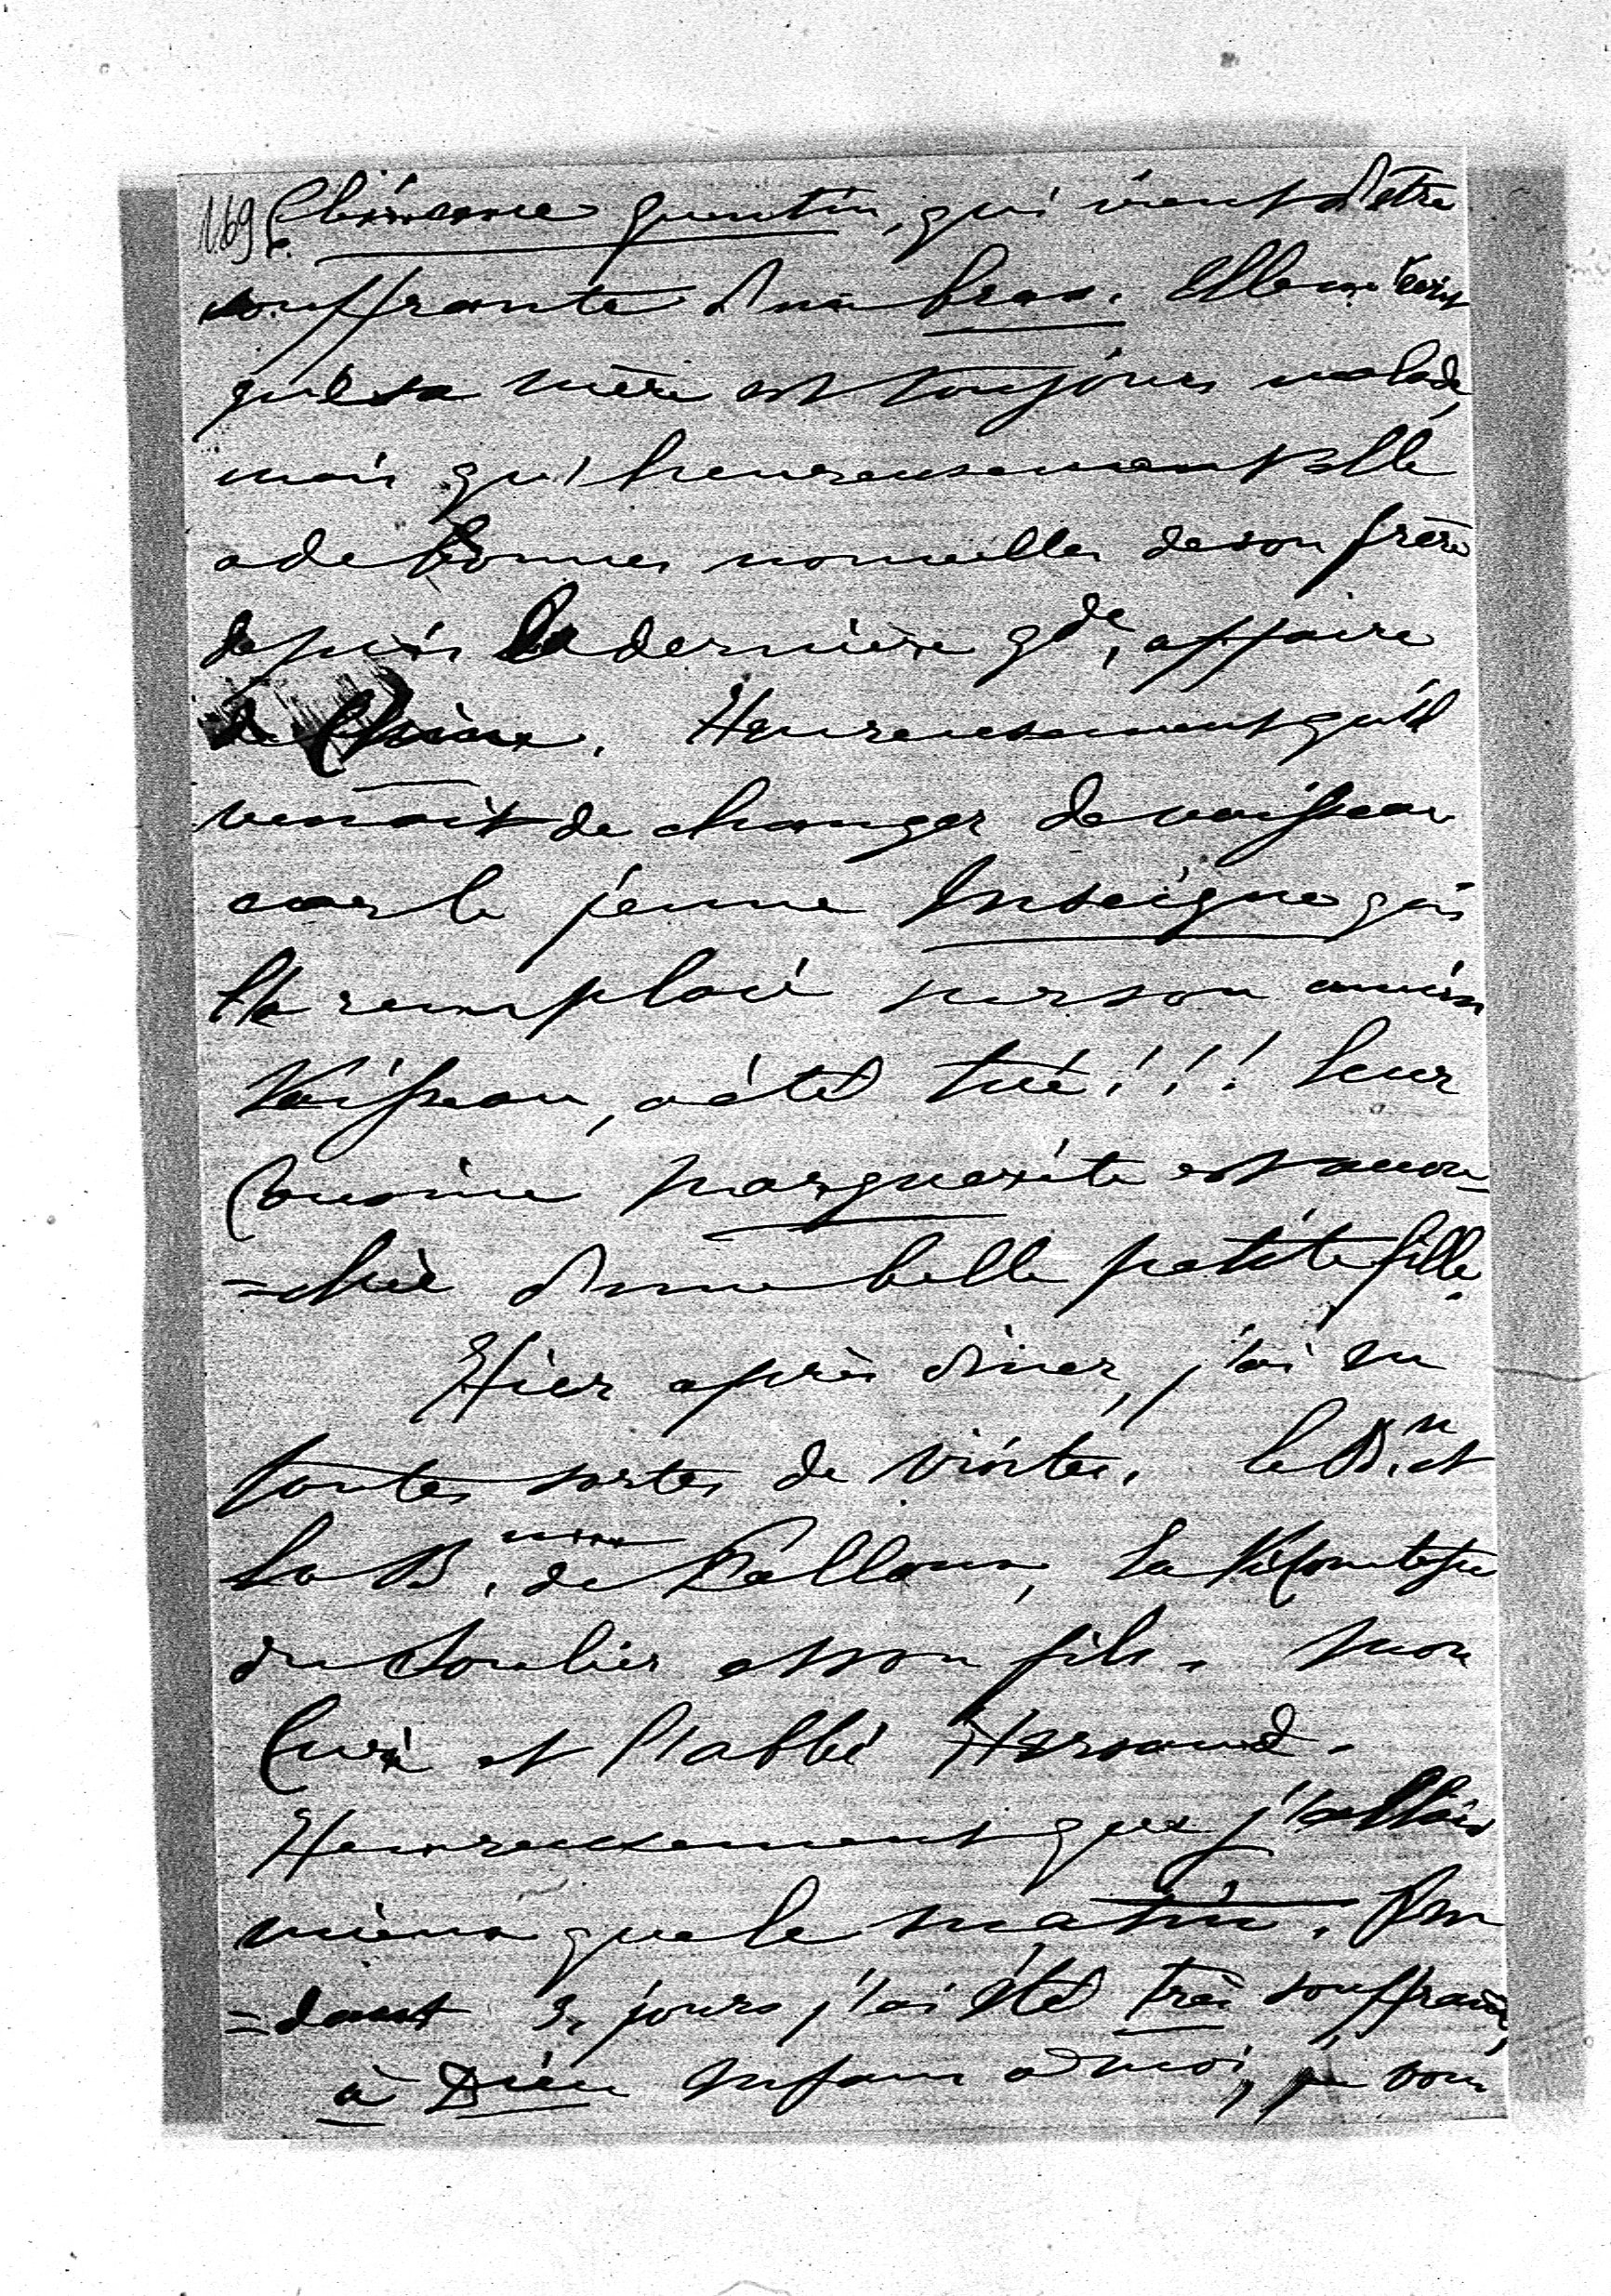 169 Clémence quentin, qui vient d'être
souffrante d'un bras. Elle me écrit
que sa mère est toujours malade,
mais qu'heureusement elle
a de bonnes nouvelles de son frère
depuis la dernière gde, affaire
de Chine. Heureusement qu'il
venait de changer de vaisseau
car le jeune Enseigne qui
l'a remplacé sur son ancien
Vaisseau, a été tué!!! Leur
Cousine Marguerite est accou=
=chée d'une belle petite fille.
Hier après diner, j'ai eu
toutes sortes de visites. le Bn. et
la B.nne de, la Vicomtesse
du Soulier et son fils. Mon
Curé et l'abbé
Heureusement que j'allais
mieux que le matin. Pen
=dant 3 jours j'ai été très souffrante,
à Dieu Enfans à moi, je vous